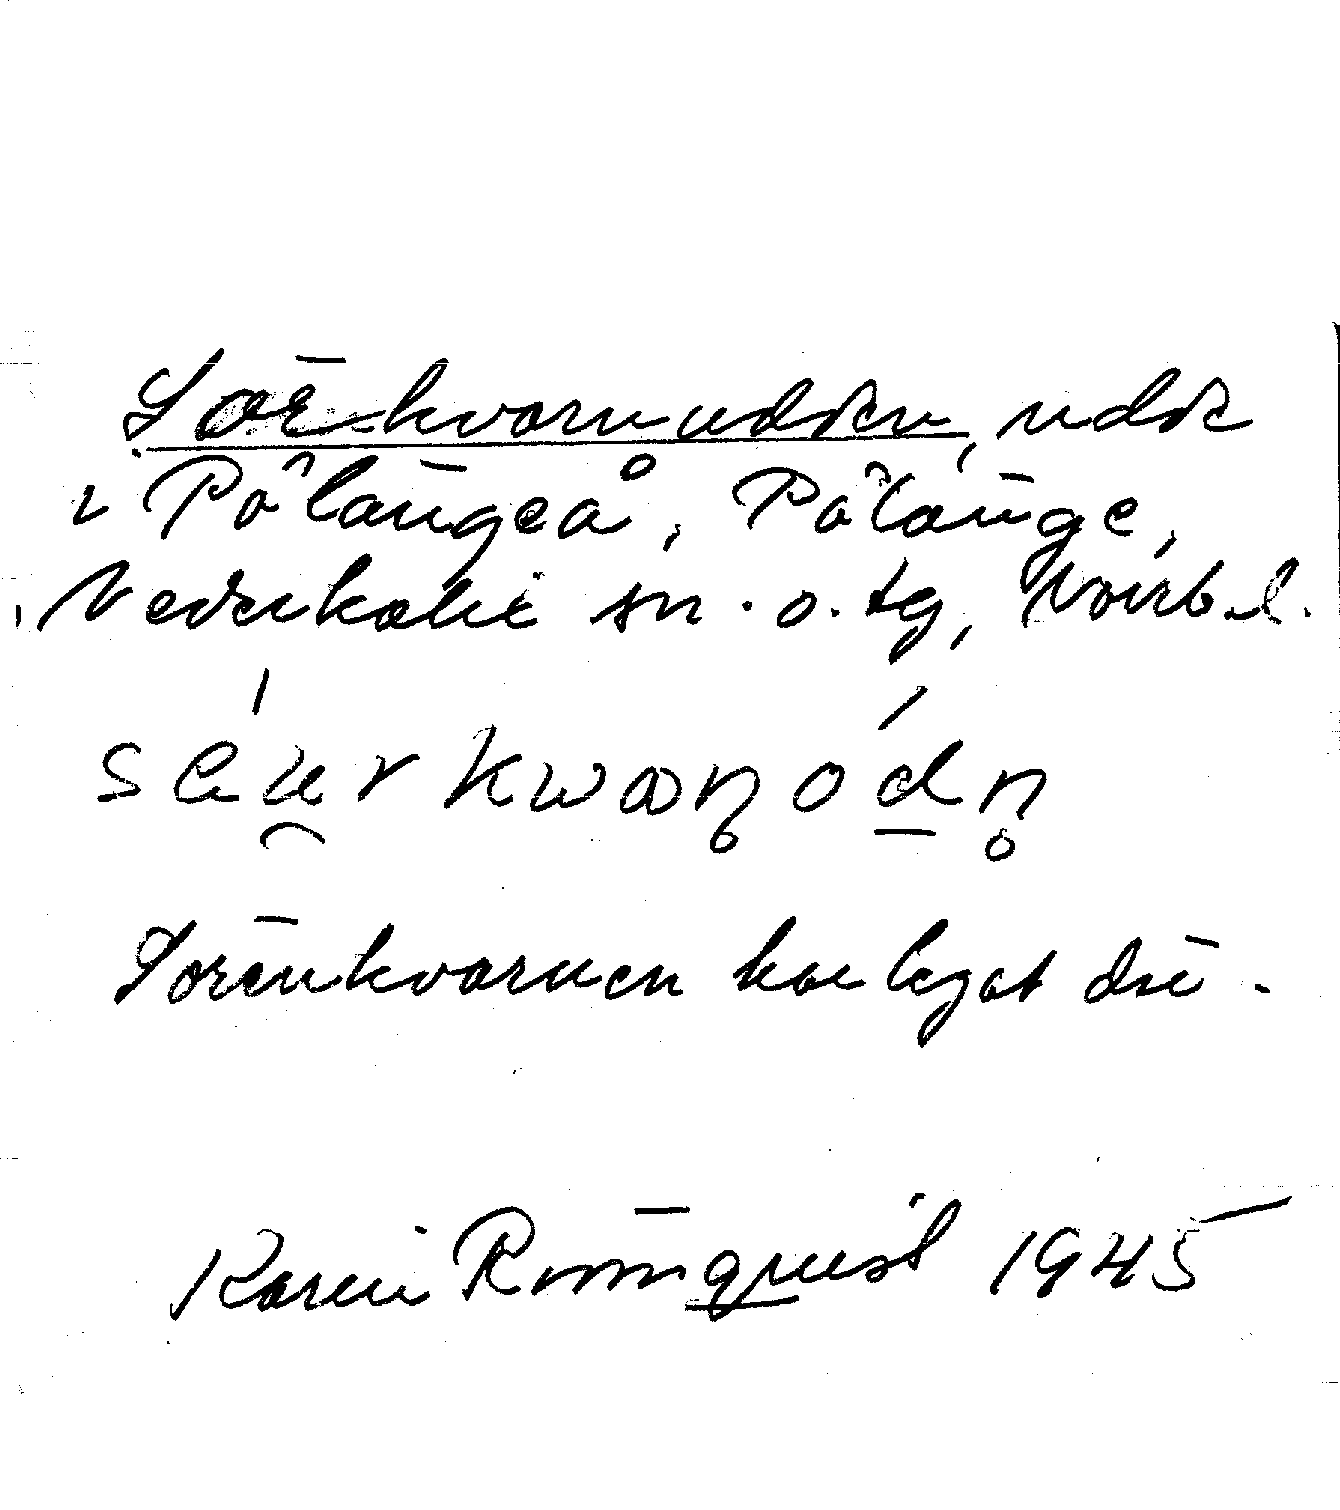 Sör-kvarnudden, udde
i Pålängeå, Pålänge,
Nederkalix sn. o. tg, Norrb. l.
Sörenkvarnen har legat där.
Karin Rönnquist 1945